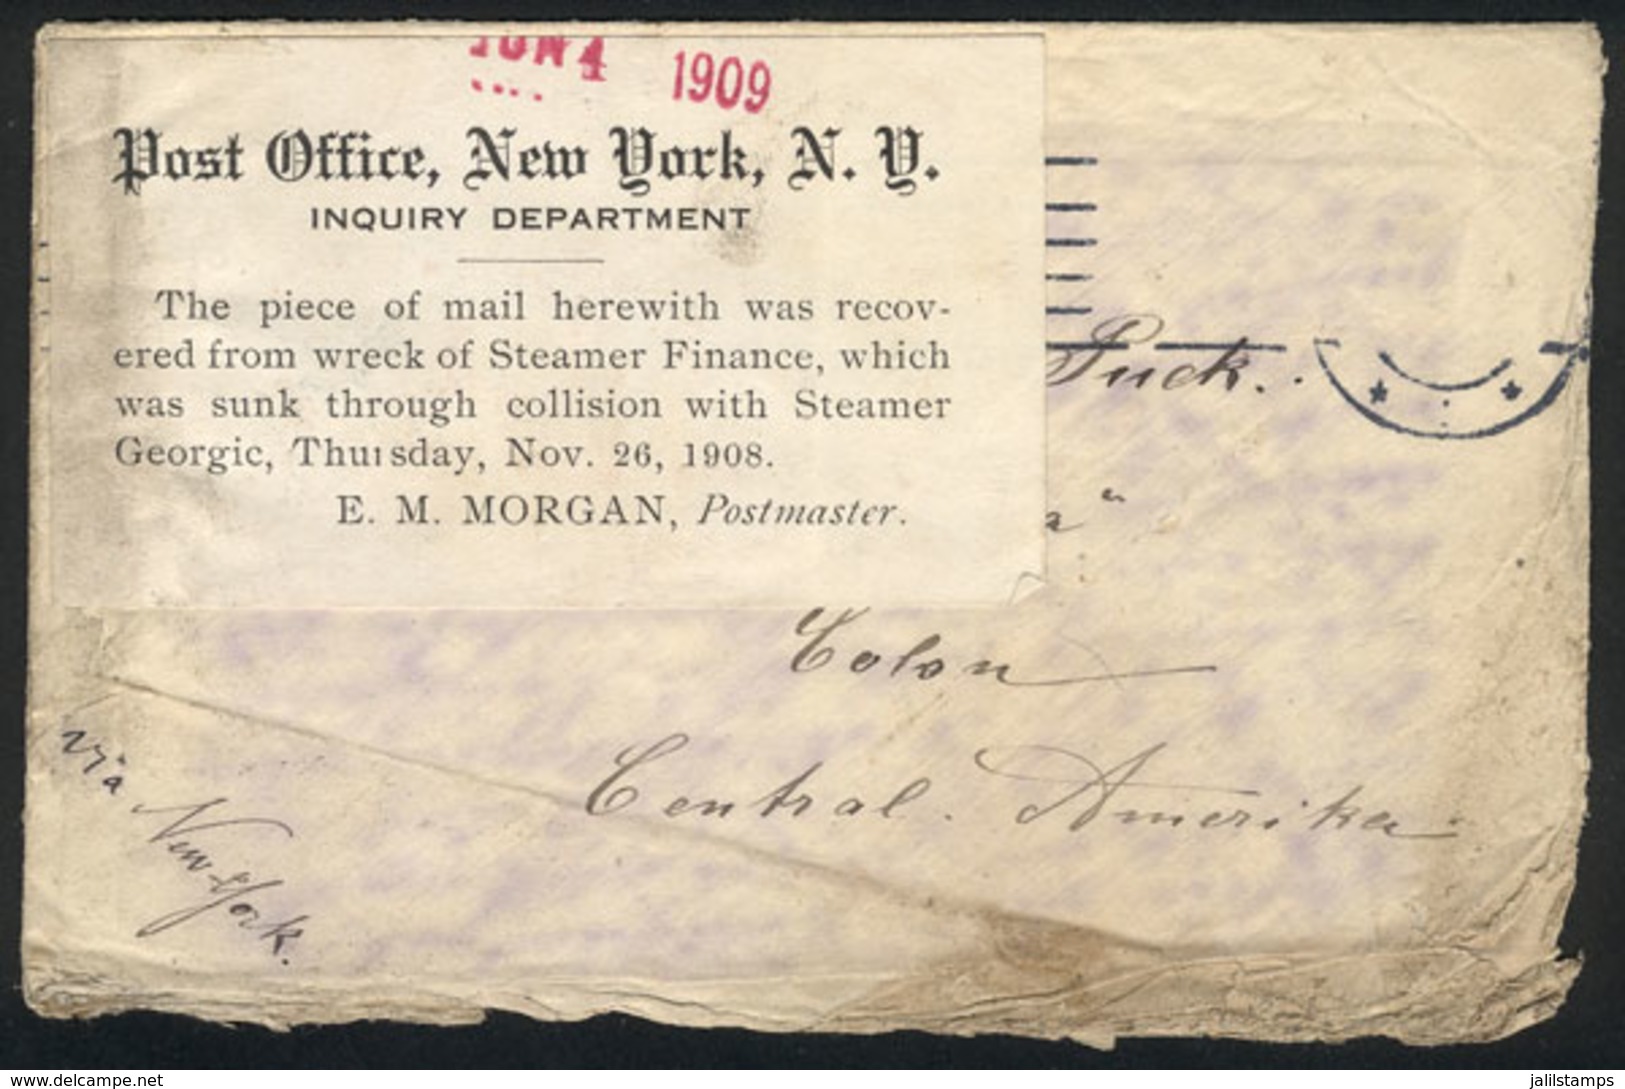 JUN 4 1909
Post Office, New York, N. Y.
INQUIRY DEPARTMENT
The piece of mail herewith was recov-
ered from wreck of Steamer Finance, which
was sunk through collision with Steamer
Georgic, Thursday, Nov. 26, 1908.
E. M. MORGAN, Postmaster.
Puck.
a"
Colon
Central Amerika
via
New-York.
www.delcampe.net
jalilstamps